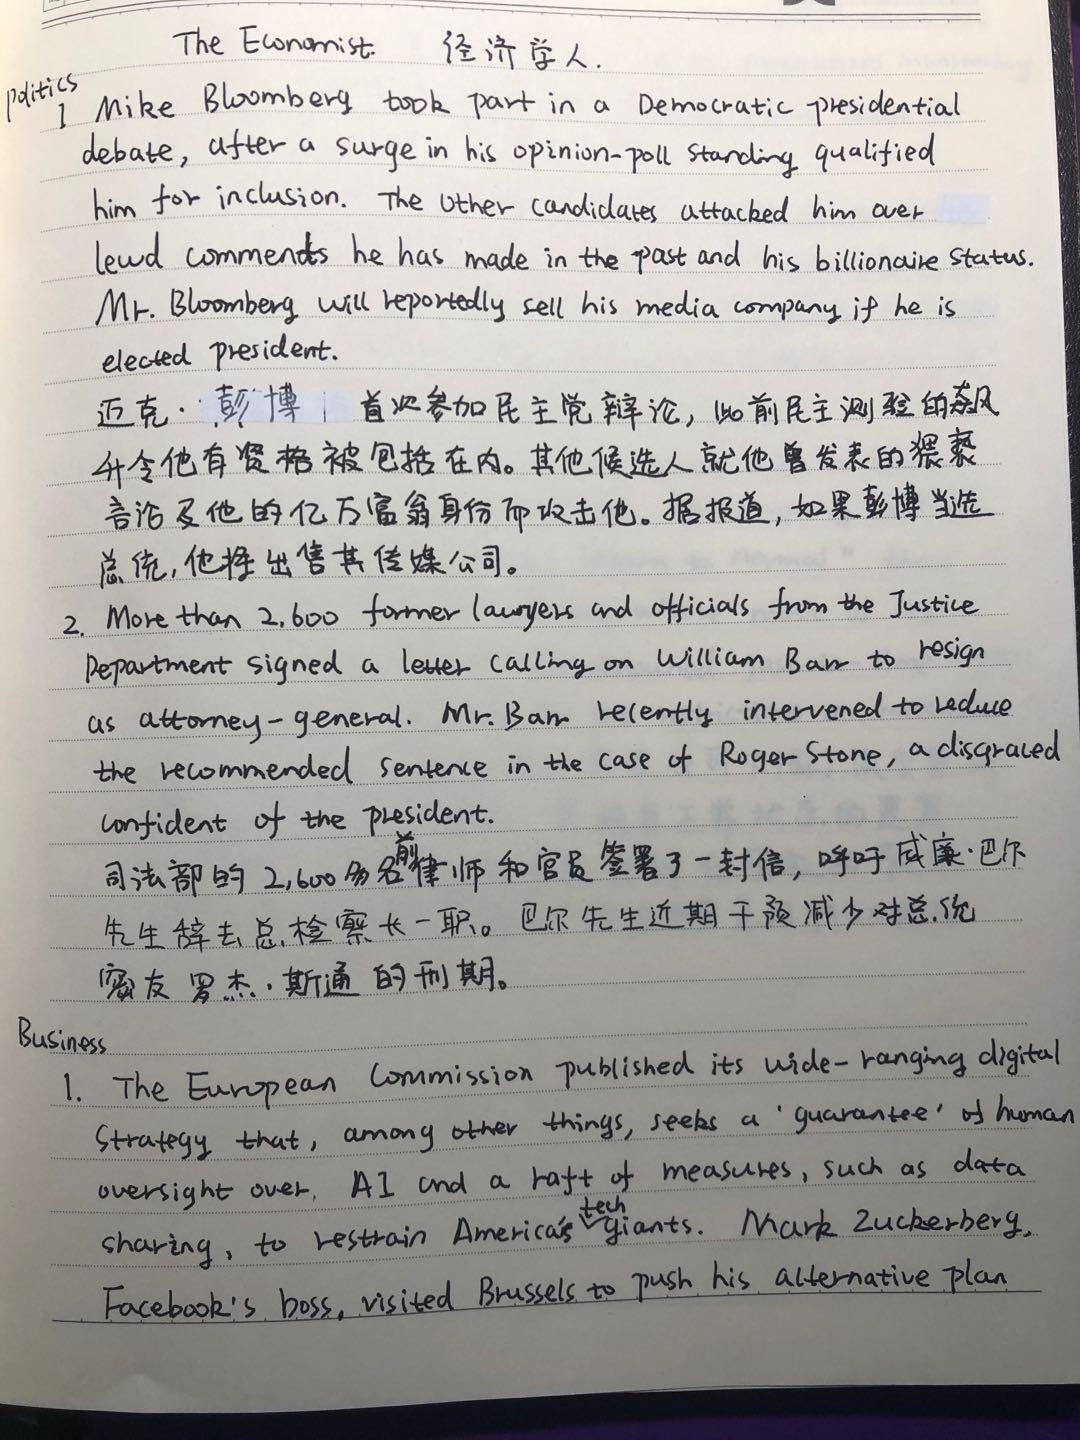 The Economist. 经济学人.
Politics
1 Mike Bloomberg took part in a Democratic presidential
debate, after a surge in his opinion-poll standing qualified
him for inclusion. The other candidates attacked him over
lewd comments he has made in the past and his billionaire status.
Mr. Bloomberg will reportedly sell his media company if he is
elected president.
迈克·彭博 首次参加民主党辩论, 此前民主测验的飙
升令他有资格被包括在内。其他候选人就他曾发表的猥亵
言论及他的亿万富翁身份而攻击他。据报道, 如果彭博当选
总统, 他将出售其传媒公司。
2. More than 2,600 former lawyers and officials from the Justice
Department signed a letter calling on William Barr to resign
as attorney-general. Mr. Barr recently intervened to reduce
the recommended sentence in the case of Roger Stone, a disgraced
confident of the president.
司法部的 2,600多名前律师和官员签署了一封信, 呼吁威廉·巴尔
先生辞去总检察长一职。巴尔先生近期干预减少对总统
密友罗杰·斯通的刑期。
Business
1. The European Commission published its wide-ranging digital
strategy that, among other things, seeks a 'guarantee' of human
oversight over. AI and a raft of measures, such as data
sharing, to restrain America's tech giants. Mark Zuckerberg,
Facebook's boss, visited Brussels to push his alternative plan